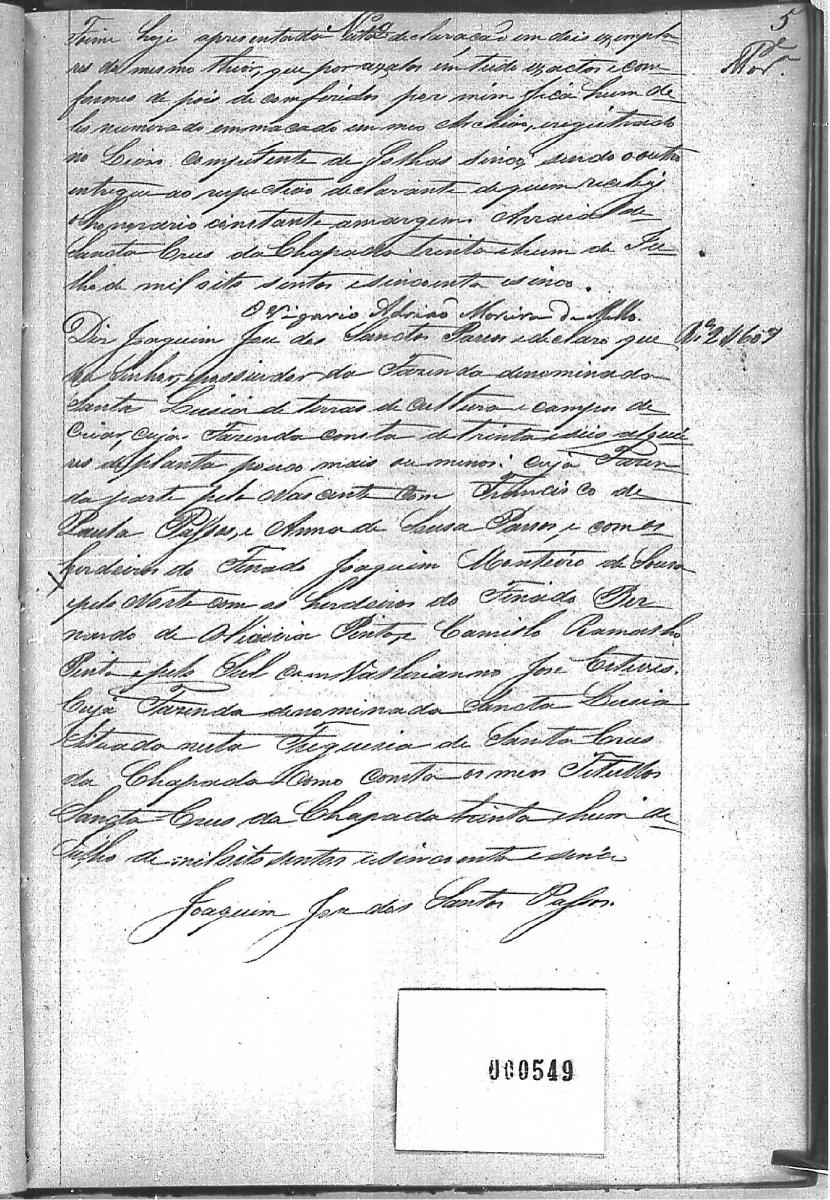 5
Foime hoje apresentada Nª 2 esta declaração em dois exempla-
res do mesmo thior, que por axalos em tudo exactos e con-
formes de pois de comferidos por mim fica hum de-
les numerado emmaçado em meo Archivo, e registrado
no Livro Competente de folhas sinco, sendo o outro
entregue ao respectivo declarante de quem recebi
o honorario constante amargem. Arraial de
Sancta Crus da Chapada trinta e hum de Ju-
lho de mil oito sentos e sincoenta e sinco.
O Vigario Adrião Moreira de Mello.
Diz Joaquim Jose dos Sanctos Passos e declaro que
Senhor, e possuidor da Fazenda denominada
Santa Lusia de terras de cultura e campos de
Criar, cuja Fazenda consta de trinta e dois alquei-
res de planta pouco mais ou menos: cuja Fazen-
da parte pelo Nascente com Francisco de
Paula Passos, e Anna de Sousa Passos, e com os
herdeiros do Finado Joaquim Monteiro de Sousa
e pelo Norte com os herdeiros do Finado Ber-
nardo de Oliveira Pinto, e Camillo Ramalho
Pinto e pelo Sul com Vallerianno Jose Esteves.
Cuja Fazenda denominada Sancta Lusia
Situada nesta Freguesia de Santa Crus
da Chapada Como consta os meos Titullos
Sancta Crus da Chapada trinta e hum de
Julho de mil oito sentos e sincoenta e sinco
Joaquim Jose dos Santos Passos.
Nº 2 1607
000549